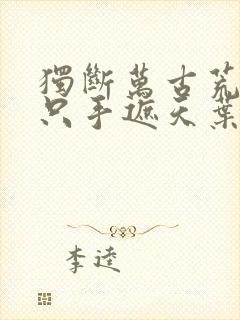 獨斷萬古荒
只手遮天葉
李逵